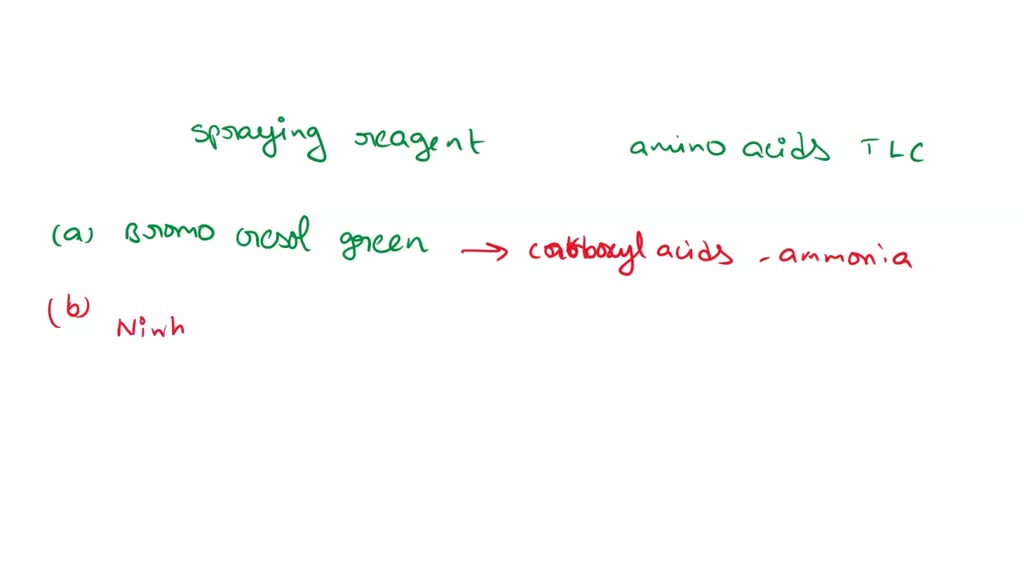 spraying reagent amino acids TLC
(a) Bromo cresol green → carboxyl acids - ammonia
(b) Ninh